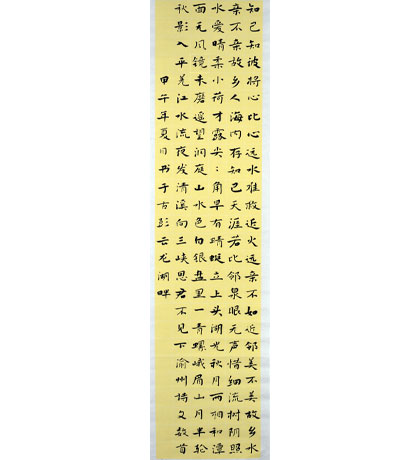 知己知彼将心比心远水难救近火远亲不如近邻美不美故乡水
亲不亲故乡人海内存知己天涯若比邻泉眼无声惜细流树阴照
水爱晴柔小荷才露尖:角早有蜻蜓立上头湖光秋月两相和潭
面无风镜未磨遥望洞庭山水色白银盘里一青螺峨眉山月半轮
秋影入平羌江水流夜发清溪向三峡思君不见下渝州诗文数首
甲午年夏月书于古彭云龙湖畔